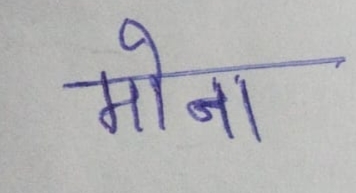 मोना